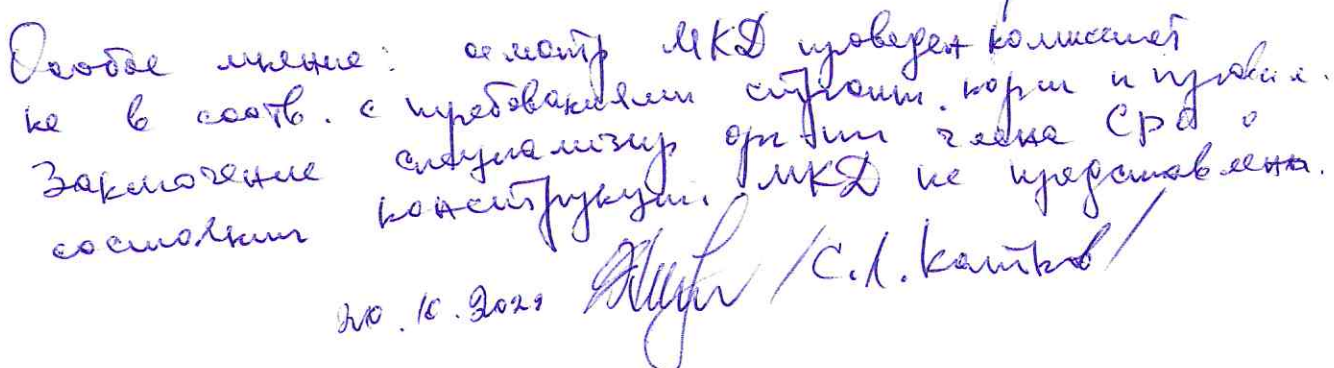 Особое мнение: осмотр МКД проведен комиссией
не в соотв. с требованиями строит. норм и правил.
Заключение специализир орг-ии члена СРО о
состоянии конструкций МКД не представлено.
20.10. /С.Л. Катков/